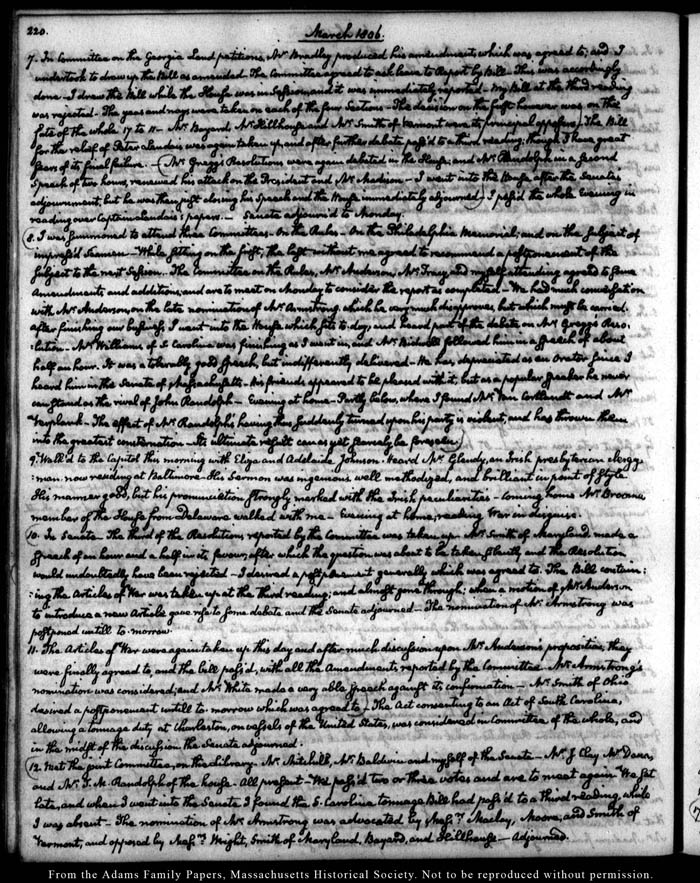 220.
March 1806.
7. In Committee on the Georgia Land petitions, Mr. Bradley produced his amendment, which was agreed to; and I
undertook to draw up the Bill as amended. The Committee agreed to ask leave to Report by Bill — This was accordingly
done — I drew the Bill while the House was in Session, and it was immediately reported — My Bill at the third reading
was rejected — The yeas and nays were taken on each of the four Sections — The decision on the first however was on the
fate of the whole 17 to 11 — Mr. Bayard, Mr. Hillhouse and Mr. Smith of Vermont were its principal opposers. The Bill
for the relief of Peter Landais was again taken up, and after further debate pass'd to a third reading; though I have great
fears of its final failure. — Mr. Gregg's Resolutions were again debated in the House; and Mr. Randolph in a second
Speech of two hours, renewed his attack on the President and Mr. Madison — I went into the House after the Senate's
adjournment, but he was then just closing his Speech and the House immediately adjourned. I pass'd the whole Evening in
reading over Captain Landais's papers. — Senate adjourn'd to Monday.
8. I was summoned to attend three Committees. On the Rules — On the Philadelphia Memorial; and on the subject of
impress'd Seamen — While sitting on the first, the last without me agreed to recommend a postponement of the
subject to the next Session. The Committee on the Rules, Mr. Anderson, Mr. Tracy, and myself attending agreed to some
Amendments and additions, and are to meet on Monday to consider the report as completed — We had much conversation
with Mr. Anderson, on the late nomination of Mr. Armstrong, which he very much disapproves, but which must be carried.
After finishing our business, I went into the House which sits to day, and heard part of the debate on Mr. Gregg's Reso-
lution — Mr. Williams of S. Carolina was finishing as I went in, and Mr. Bidwell followed him in a speech of about
half an hour. It was a tolerably good speech, but indifferently delivered — He has depreciated as an Orator since I
heard him in the Senate of Massachusetts — his friends appeared to be pleased with it, but as a popular speaker he never
can stand as the rival of John Randolph — Evening at home — Partly below, where I found Mr. Van Cortlandt and Mr.
Verplank — The effect of Mr. Randolph's having thus suddenly turned upon his party is violent, and has thrown them
into the greatest consternation — Its ultimate result can as yet scarcely be foreseen.
9. Walk'd to the Capitol this morning with Eliza and Adelaide Johnson. Heard Mr. Glendy, an Irish presbyterian clergy-
:man now residing at Baltimore — His Sermon was ingenious well methodized, and brilliant in point of style
His manner good, but his pronunciation strongly marked with the Irish peculiarities — Coming home Mr. Broome
member of the House from Delaware walked with me — Evening at home, reading War in disguise.
10. In Senate — The third of the Resolutions reported by the Committee was taken up — Mr. Smith of Maryland made a
speech of an hour and a half in its favour; after which the question was about to be taken silently and the Resolution
would undoubtedly have been rejected — I desired a postponement generally which was agreed to. The Bill contain:
:ing the Articles of War was taken up at the third reading; and almost gone through; when a motion of Mr. Anderson
to introduce a new Article gave rise to some debate and the Senate adjourned — The nomination of Mr. Armstrong was
postponed untill to-morrow.
11. The Articles of War were again taken up this day and after much discussion upon Mr. Anderson's proposition, they
were finally agreed to, and the bill pass'd, with all the Amendments reported by the Committee. Mr. Armstrong's
nomination was considered; and Mr. White made a very able speech against its confirmation — Mr. Smith of Ohio
desired a postponement untill to-morrow which was agreed to. The Act consenting to an Act of South Carolina,
allowing a tonnage duty at Charleston, on vessels of the United States, was considered in Committee of the whole, and
in the midst of the discussion the Senate adjourned.
12. Met the joint Committee, on the Library. Mr. Mitchill, Mr. Baldwin and myself of the Senate — Mr. J. Clay Mr. Dana,
and Mr. T. M. Randolph of the house — All present — We pass'd two or three votes and are to meet again — We sat
late, and when I went into the Senate I found the S. Carolina tonnage Bill had pass'd to a third reading, while
I was absent — The nomination of Mr. Armstrong was advocated by Mess.rs Maclay, Moore, and Smith of
Vermont, and opposed by Mess.rs Wright, Smith of Maryland, Bayard, and Hillhouse — Adjourned.
From the Adams Family Papers, Massachusetts Historical Society. Not to be reproduced without permission.